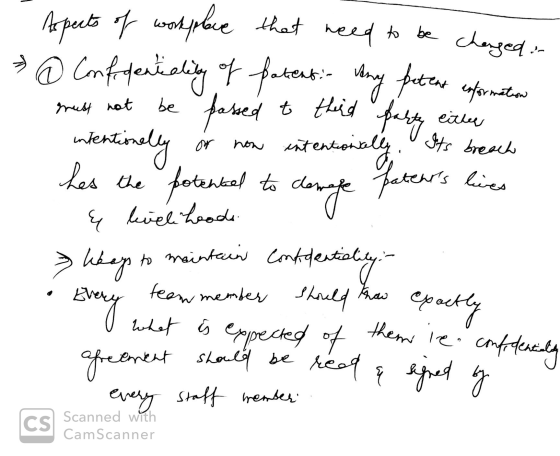 Aspects of workplace that need to be changed:-
⇒ ① Confidentiality of patient:- Any patient information
must not be passed to third party either
intentionally or non intentionally. Its breach
has the potential to damage patient's lives
& livelihoods.
⇒ Ways to maintain Confidentiality:-
• Every team member should know exactly
what is expected of them i.e. confidentiality
agreement should be read & signed by
every staff member.
CS Scanned with
CamScanner